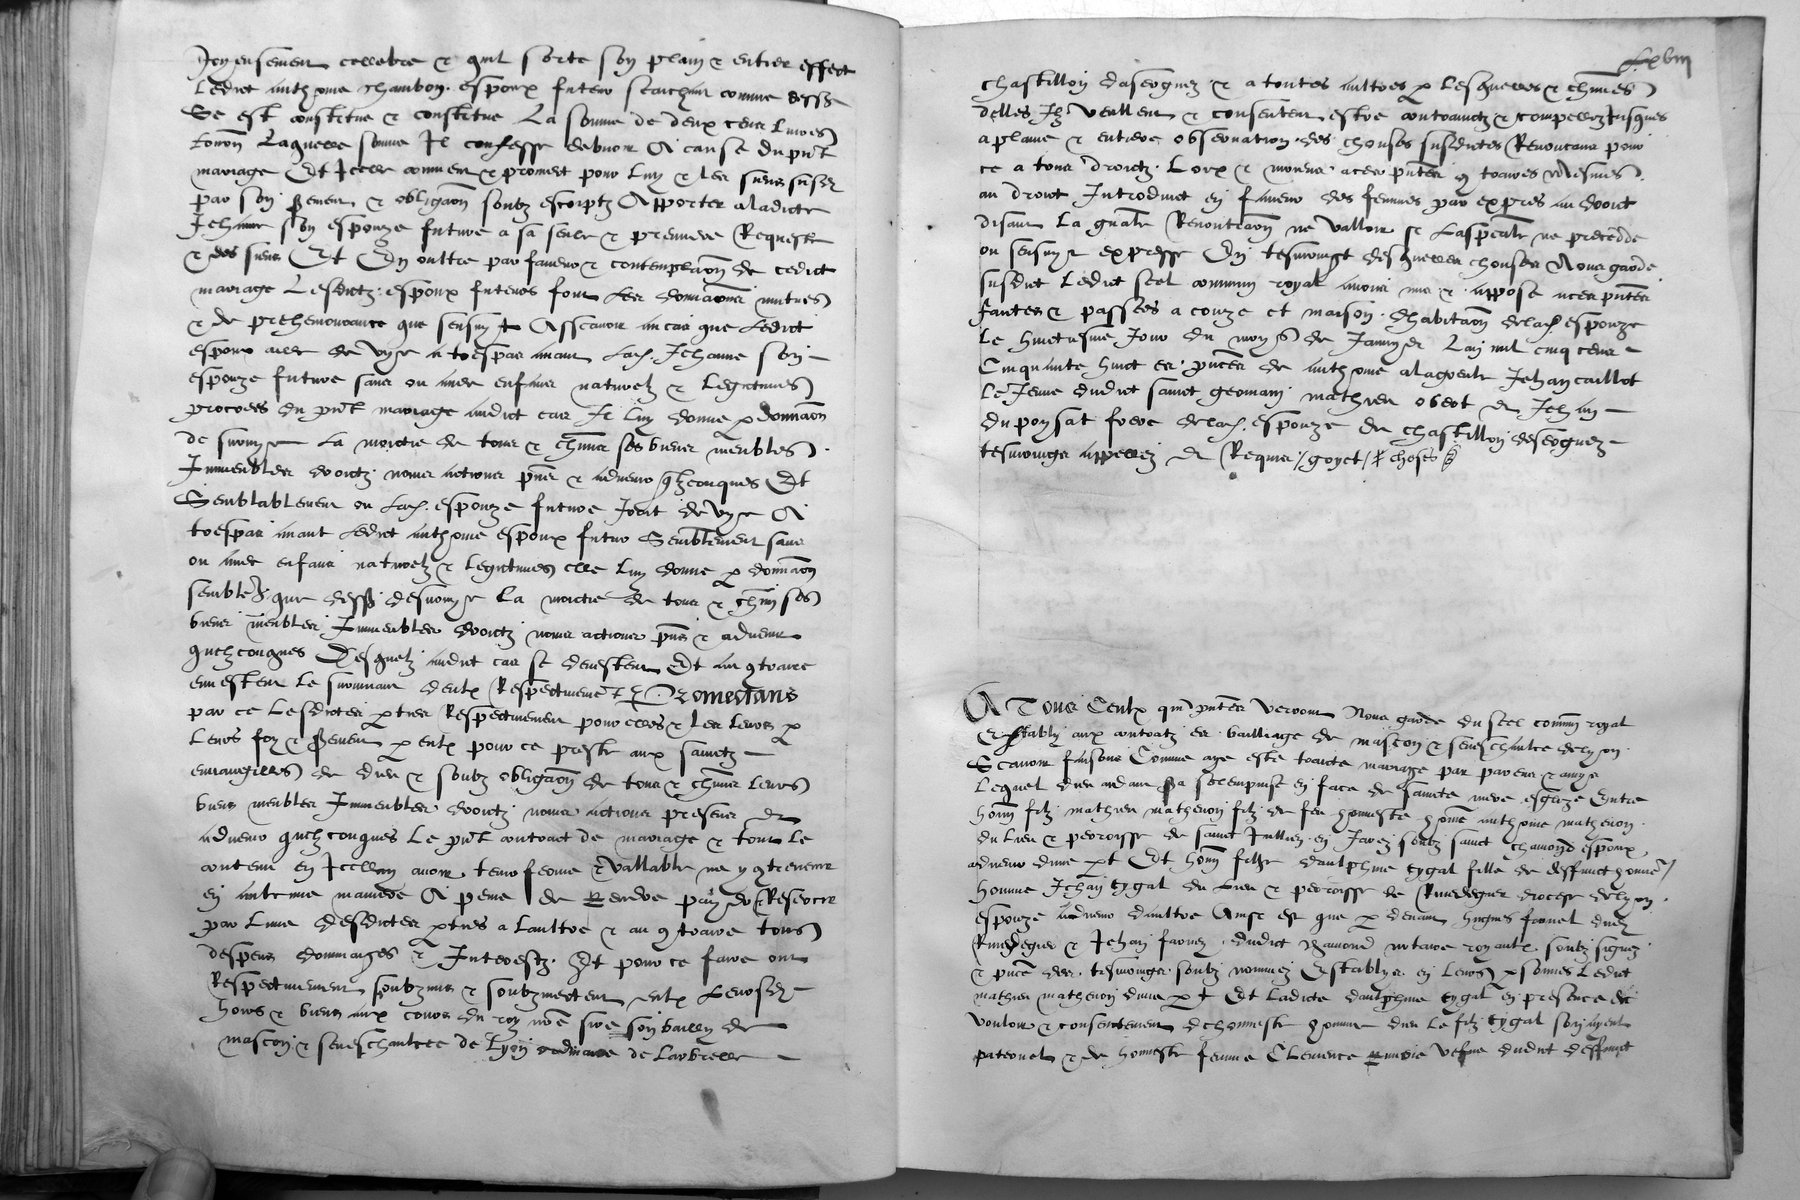 Joyeusement cellebre & quil sorte son plain & entier effect
Ledict anthoine chambon espoux futeur sachant comme dessus
Se est constitue & constitue La somme de deux cens Livres
tourn Laquelle somme Il confesse debvoir A cause du pnt
mariage Et Icelle convient & promect pour Luy & les siens susd
par son serment & obligaon soubz escriptz Apporter a ladicte
Jehanne son espouze future a sa seule & premiere Requeste
& des siens Et En oultre par faveur & contemplaon de cedict
mariage Lesdictz espoux futeurs font Les donnaons mutues
& de prehemorance que sensuyt Asscavoir au cas que Ledict
espoux aille de vye a trespas avant Lad Jehanne son
espouze future sans ou avec enfans naturelz & Legitimes
procrees du pnt mariage audict cas Il luy donne p donnaon
de survye La moictie de tous & chuns ses biens meubles
Immeubles droictz noms actions pns & advenir qlzconques Et
Semblablement ou Lad espouze future Iroit de vye A
trespas avant Ledict anthoine espoux futur Semblement sans
ou avec enfans naturelz & Legitimes elle Luy donne p donnaon
semble que dessus de survye La moictie de tous & chuns ses
biens meubles Immeubles droictz noms actions pns & advenir
quelzconques Desquelz audict cas se devestent Et au contraire
envestent le survivant deulx Respectivement &c Promectans
par ce Lesdictes pties Respectivement pour elles & Les Leurs p
Leurs foy & serment p eulx pour ce preste aux sainctz
euvangilles de dieu & soubz obligaon de tous & chuns Leurs
biens meubles Immeubles droictz noms actions presens &
advenir quelzconques Le pnt contract de mariage & tout le
contenu en Icelluy avoir tenir ferme & vallable ne y contrevenir
en aulcune maniere A peine de Rendre payer & Reserere
par Lune desdictes pties a Laultre & au contraire tous
despens dommaiges & Interestz Et pour ce faire ont
Respectivement soubzmis & soubzmectent eulx Leursd
hoirs & biens aux cours du roy nre sire son bailly de
mascon & seneschaulcee de Lyon ordinaire de Larbrelle
Lxviii
chastillon dasergues & a toutes aultres p Lesquelles & chunes
delles Ilz veullent & consentent estre contrainctz & compellez Jusques
a plaine & entiere observation des choses susdictes Renoncans pour
ce a tous droictz Loix & moyens a ces pntes contraires Mesmes
au droict Introduict en faveur des femmes par expres au droict
disant La gnalle Renontiaon ne valloir se Laspecialle ne precedde
ou sensuyt expresse En tesmoingt desquelles choses Nous garde
susdict Ledict scel commun royal avons mis & appose a ces pntes
faictes & passees a couze et maison dhabitaon de lad espouze
Le huictiesme Jour du moys de Janvyer Lan mil cinq cens
Cinquante huict es pnces de anthoine alagoutte Jehan caillot
Le Jeune dudict sainct germain mathieu obert & Jehan
du ponsat frere de lad espouze de chastillon dasergues
tesmoings appellez & Requis / goyet /
A Tous Ceulx qui pntes verront Nous garde du scel commun royal
Estably aux contractz es bailliage de mascon & seneschaulcee de lyon
Scavoir faisons Comme aye este traicte mariage par parens & amys
Lequel dieu aydant sera solempnise en face de saincte mere esglize Entre
honn filz mathieu mathevon filz de feu honneste homme anthoine mathevon
du Lieu & perroisse de sainct Jullien en Jarez soubz sainct chamond espoux
advenir dune pt Et honn fille daulphine tygal fille de deffunct honneste
homme Jehan tygal du Lieu & perroisse de Rivedegier diocese de lyon
espouze advenir daultre Ainsi est que p devant hugues favuel dud
Rivedegier & Jehan favuel dudict chamond notaires royaulx soubz signez
& pnce des tesmoings soubz nommez Establys en Leurs psonnes Ledict
mathieu mathevon dune pt Et Ladicte daulphine tygal en presence de
vouloir & consentement dhonneste homme dieu le filz tygal son ayeul
paternel & de honneste femme Clemence vefve dudict deffunct